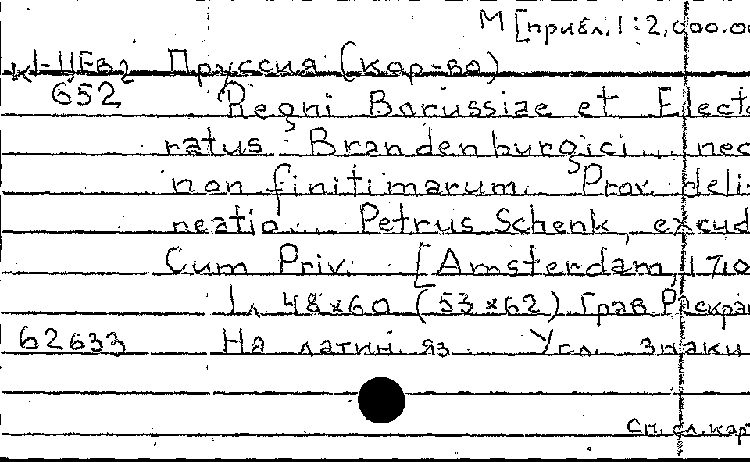 М [прибл. 1:2,000.00
К1-ЦЕв2 Пруссия (кор-во)
652 Regni Borussiae et Elect
ratus Brandenburgici... nec
non finitimarum Prov. deli-
neatio... Petrus Schenk, excud
Cum Priv. [Amsterdam, 1710
1 л 48×60 (53×62) Грав Раскра
62633 На латин. яз. Усл. знаки
См. сл. кар